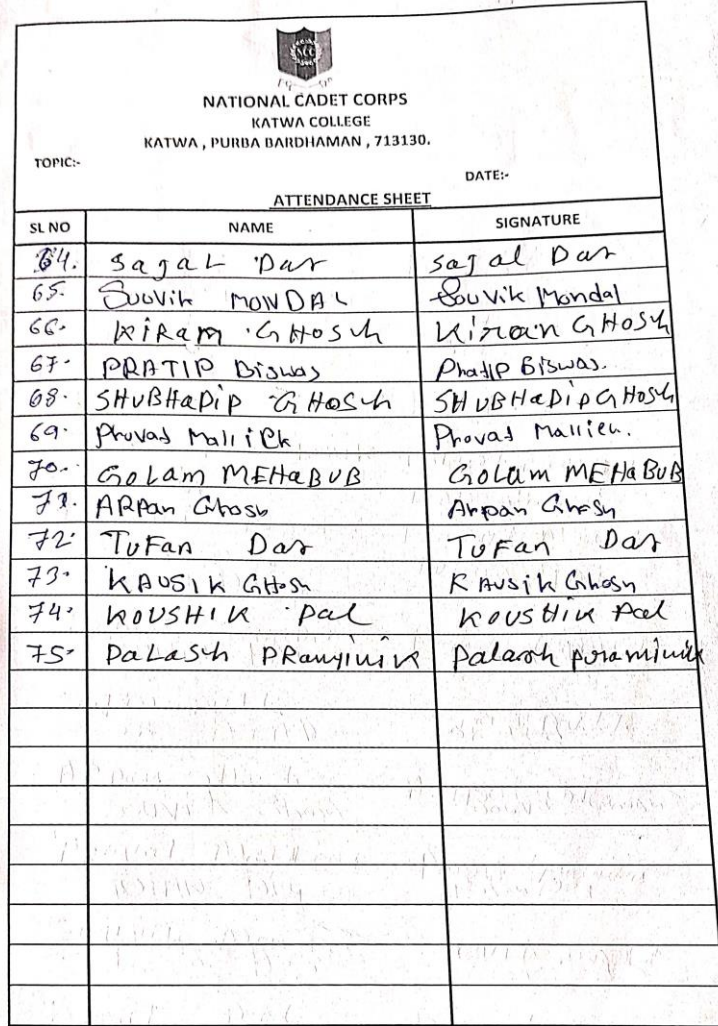 NCC
NATIONAL CADET CORPS
KATWA COLLEGE
KATWA , PURBA BARDHAMAN , 713130.
TOPIC:-
DATE:-
ATTENDANCE SHEET
SL NO NAME SIGNATURE
64. SajaL Das Sajal Das
65. Souvik MONDAL Souvik Mondal
66. KiRam GHOSh Kiran GHOSh
67. PRATIP Biswas Pratip Biswas.
68. SHUBHaDip GHOSh SHUBHaDip GHOSh
69. Provas Mallick Provas Mallick.
70. GoLam MEHaBUB GoLam MEHaBUB
71. ARPan Ghosh Arpan Ghosh
72. TuFan Das TuFan Das
73. KAUSIK GHosh KAUSik Ghosh
74. KOUSHIK Pal KOUSHIK Pal
75. PaLaSh Palash